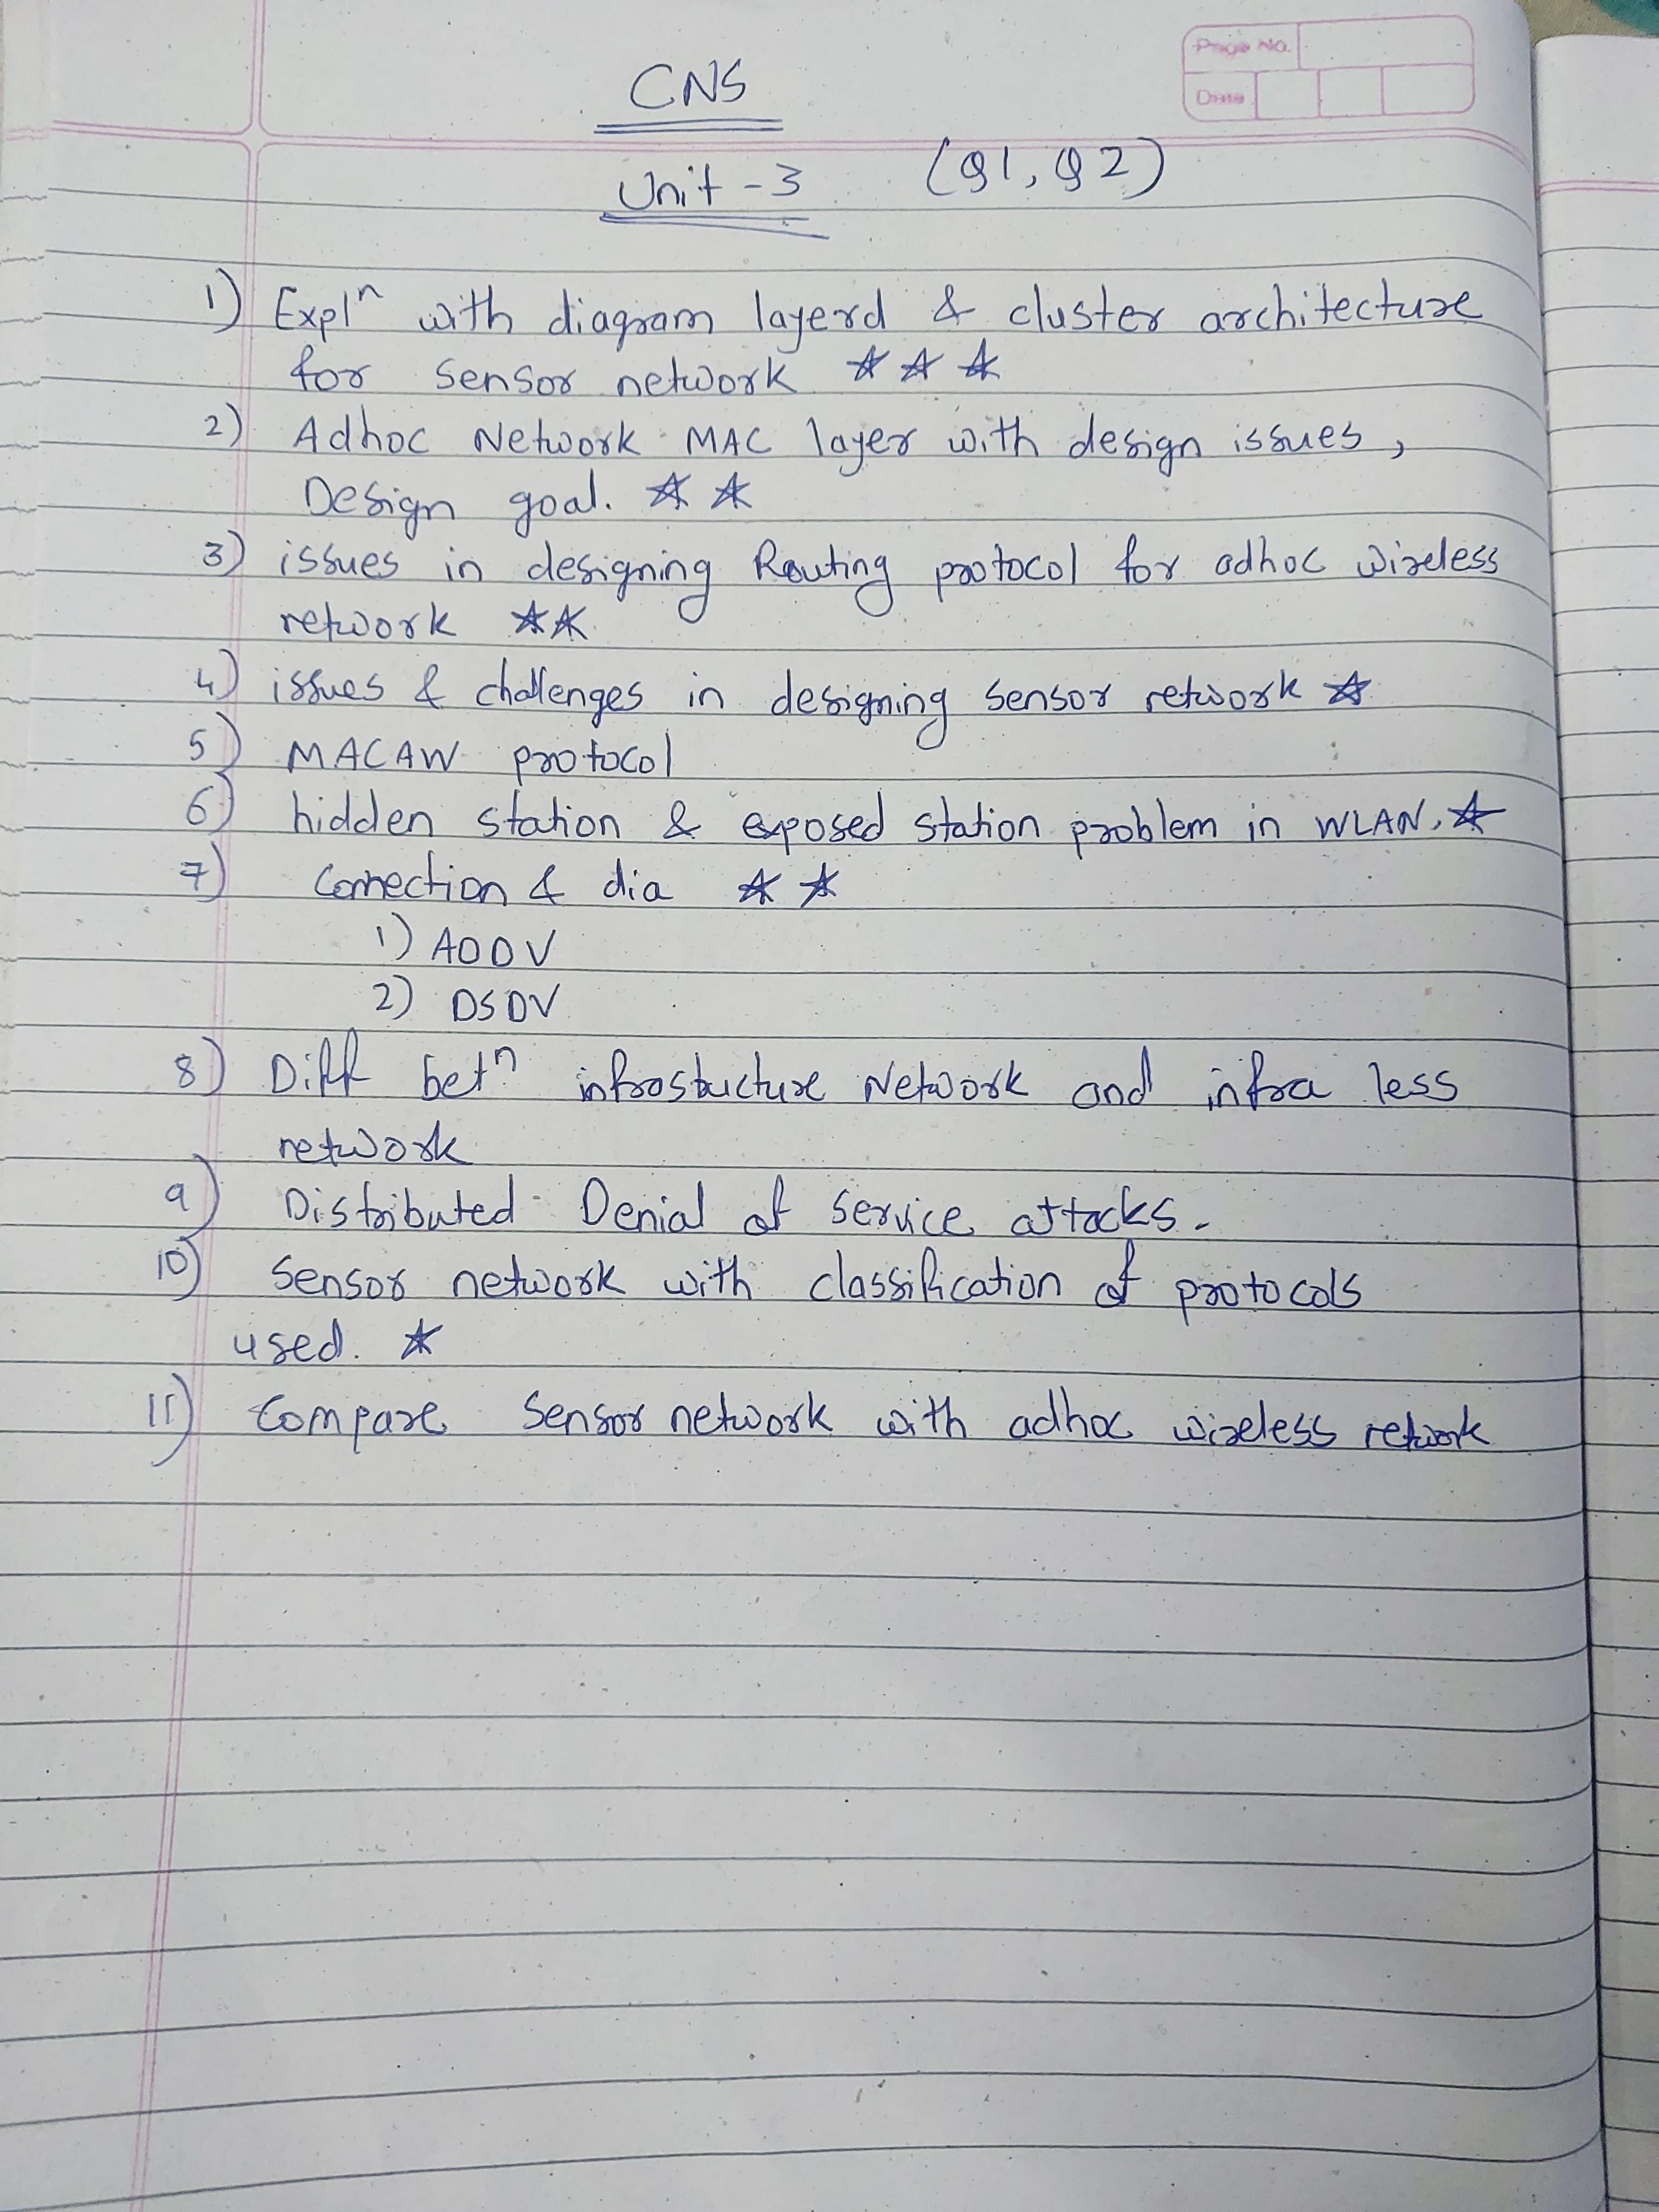 Page No.
Date
CNS
Unit - 3 (Q1, Q2)
1) Explⁿ with diagram layerd & cluster architecture
for sensor network ☆ ☆ ☆
2) Adhoc Network MAC layer with design issues,
Design goal. ☆ ☆
3) issues in designing Routing protocol for adhoc wireless
network ☆☆
4) issues & challenges in designing sensor network ☆
5) MACAW protocol
6) hidden station & exposed station problem in WLAN. ☆
7) Connection & dia ☆ ☆
1) AODV
2) DSDV
8) Diff betⁿ infrastucture Network and infra less
network
9) Distributed Denial of service attacks.
10) Sensor network with classification of protocols
used. ☆
11) Compare Sensor network with adhoc wireless network